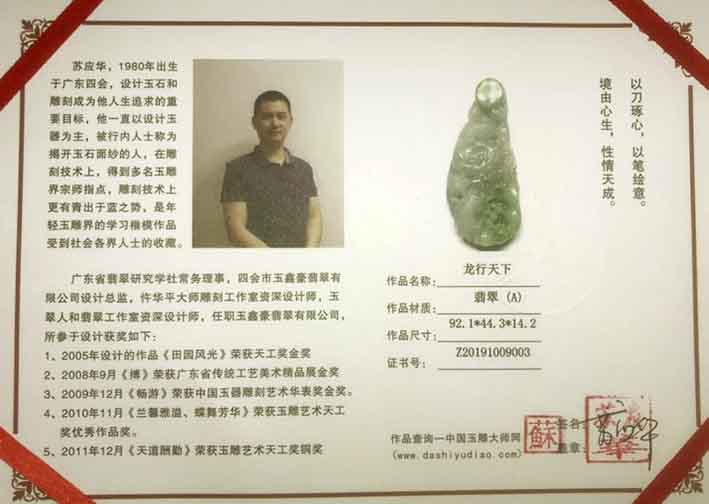 苏应华，1980年出生
于广东四会，设计玉石和
雕刻成为他人生追求的重
要目标，他一直以设计玉
器为主，被行内人士称为
揭开玉石面纱的人，在雕
刻技术上，得到多名玉雕
界宗师指点，雕刻技术上
更有青出于蓝之势，是年
轻玉雕界的学习楷模作品
受到社会各界人士的收藏。
广东省翡翠研究学社常务理事，四会市玉鑫豪翡翠有
限公司设计总监，仵华平大师雕刻工作室资深设计师，玉
翠人和翡翠工作室资深设计师，任职玉鑫豪翡翠有限公司，
所参于设计获奖如下：
1、2005年设计的作品《田园风光》荣获天工奖金奖
2、2008年9月《博》荣获广东省传统工艺美术精品展金奖
3、2009年12月《畅游》荣获中国玉器雕刻艺术华表奖金奖。
4、2010年11月《兰馨雅溢、蝶舞芳华》荣获玉雕艺术天工
奖优秀作品奖。
5、2011年12月《天道酬勤》荣获玉雕艺术天工奖铜奖
以刀琢心，以笔绘意。
境由心生，性情天成。
作品名称： 龙行天下
作品材质： 翡翠 (A)
作品尺寸： 92.1*44.3*14.2
证书号： Z20191009003
作品查询—中国玉雕大师网
(www.dashiyudiao.com)
蘇
签名：
盖章：